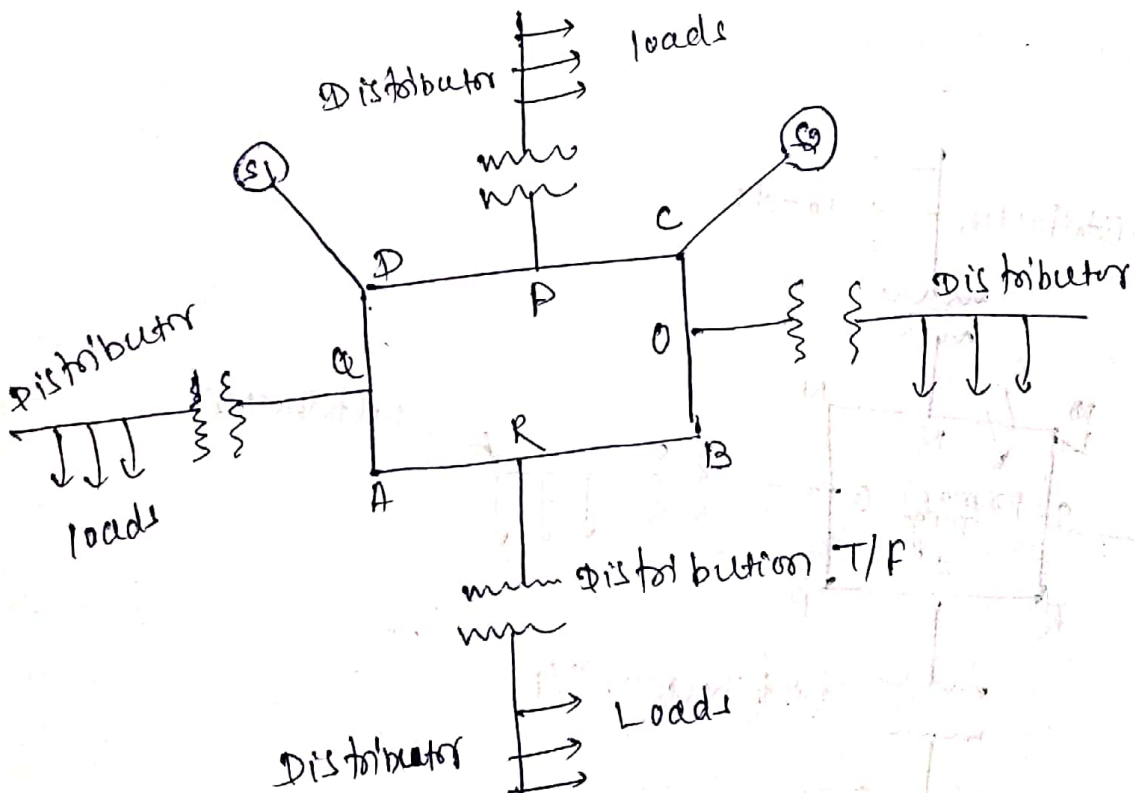 loads
Distributor
S1
S2
C
D
P
Distributor
O
Distributor
Q
R
B
A
loads
Distribution T/F
Loads
Distributor